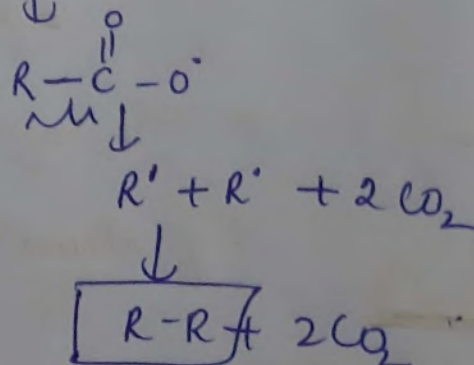 ↓
O
||
R — C — O˙
↓
R' + R˙ + 2 CO₂
↓
R - R + 2CO₂